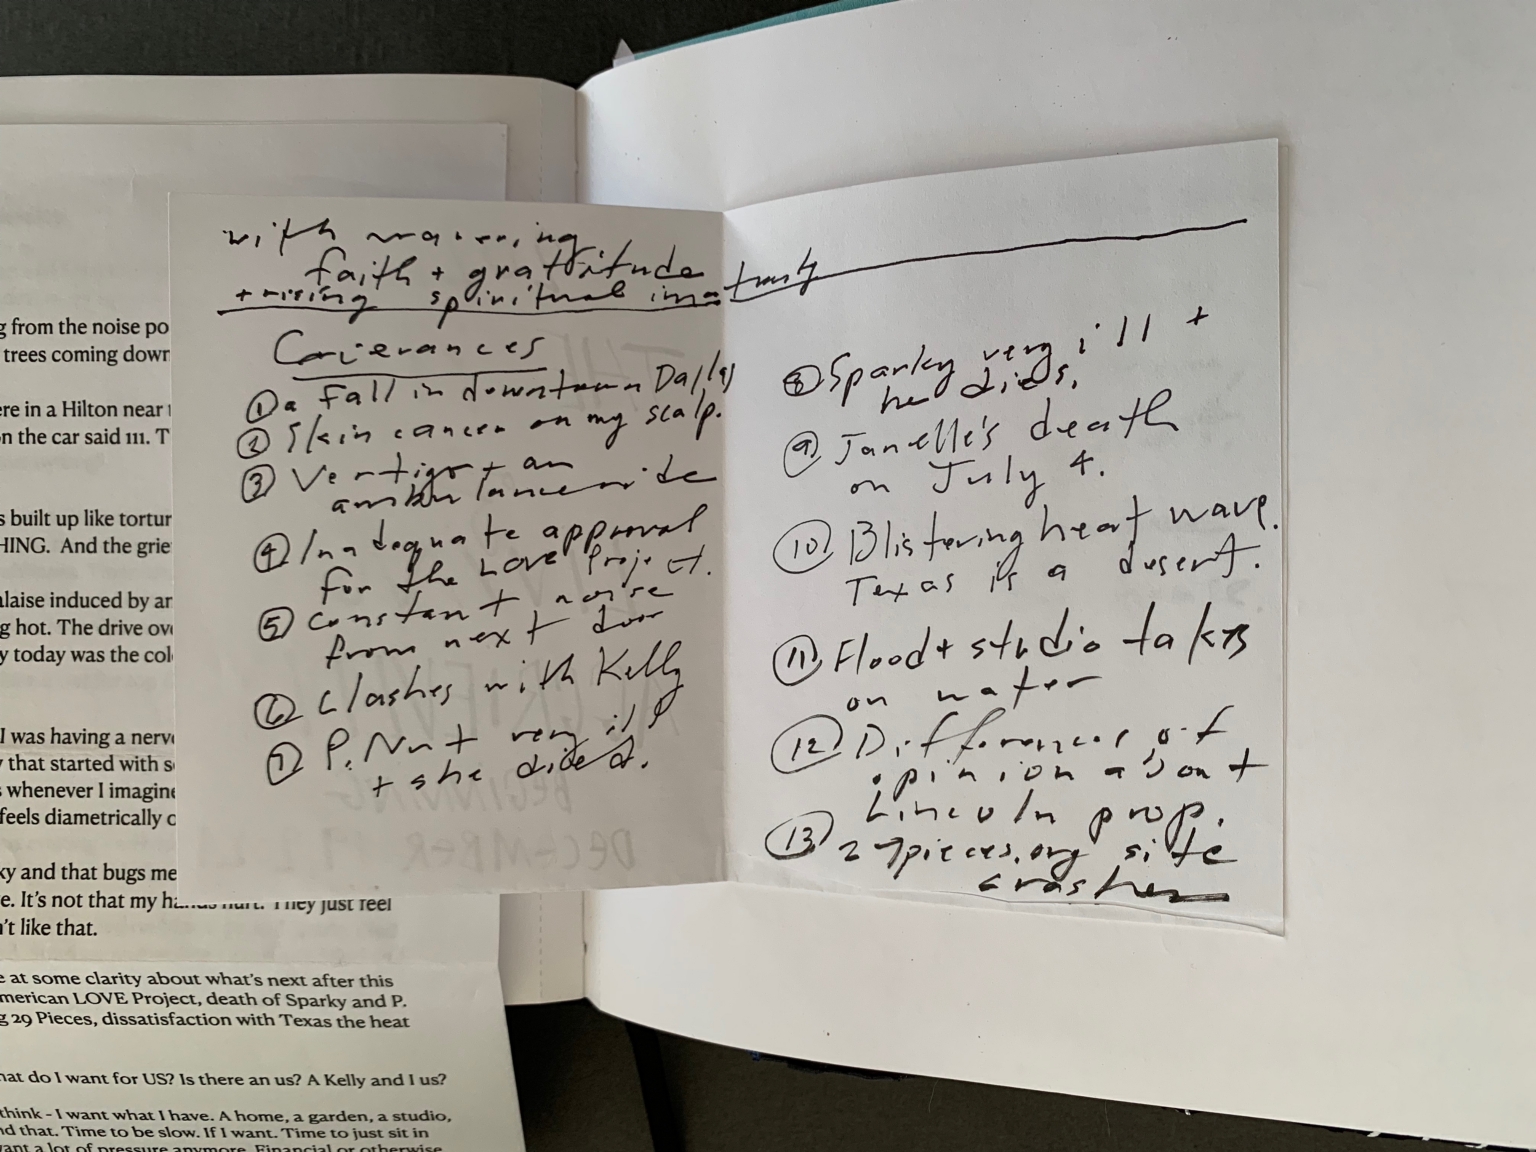 with wavering
faith + grattitude
+ rising spiritual imaturity
Grierances
① a Fall in downtown Dallas
② Skin cancer on my scalp.
③ Vertigo + an
ambulance ride
④ Inadequate approval
for the LOVE Project.
⑤ Constant noise
from next door
⑥ Clashes with Kelly
⑦ P. Nut very ill
+ she died.
⑧ Sparky very ill +
he dies.
⑨ Janelle's death
on July 4.
⑩ Blistering heat wave.
Texas is a desert.
⑪ Flood + studio takes
on water
⑫ Differences of
opinion about
Lincoln prop.
⑬ 29pieces.org site
crashes
g from the noise po
trees coming down
ere in a Hilton near
n the car said 111. T
s built up like tortur
HING. And the grie
alaise induced by an
g hot. The drive ov
y today was the col
I was having a nerv
that started with s
whenever I imagine
feels diametrically c
ky and that bugs me
e. It's not that my hands hurt. They just feel
't like that.
e at some clarity about what's next after this
merican LOVE Project, death of Sparky and P.
g 29 Pieces, dissatisfaction with Texas the heat
hat do I want for US? Is there an us? A Kelly and I us?
think - I want what I have. A home, a garden, a studio,
nd that. Time to be slow. If I want. Time to just sit in
want a lot of pressure anymore. Financial or otherwise